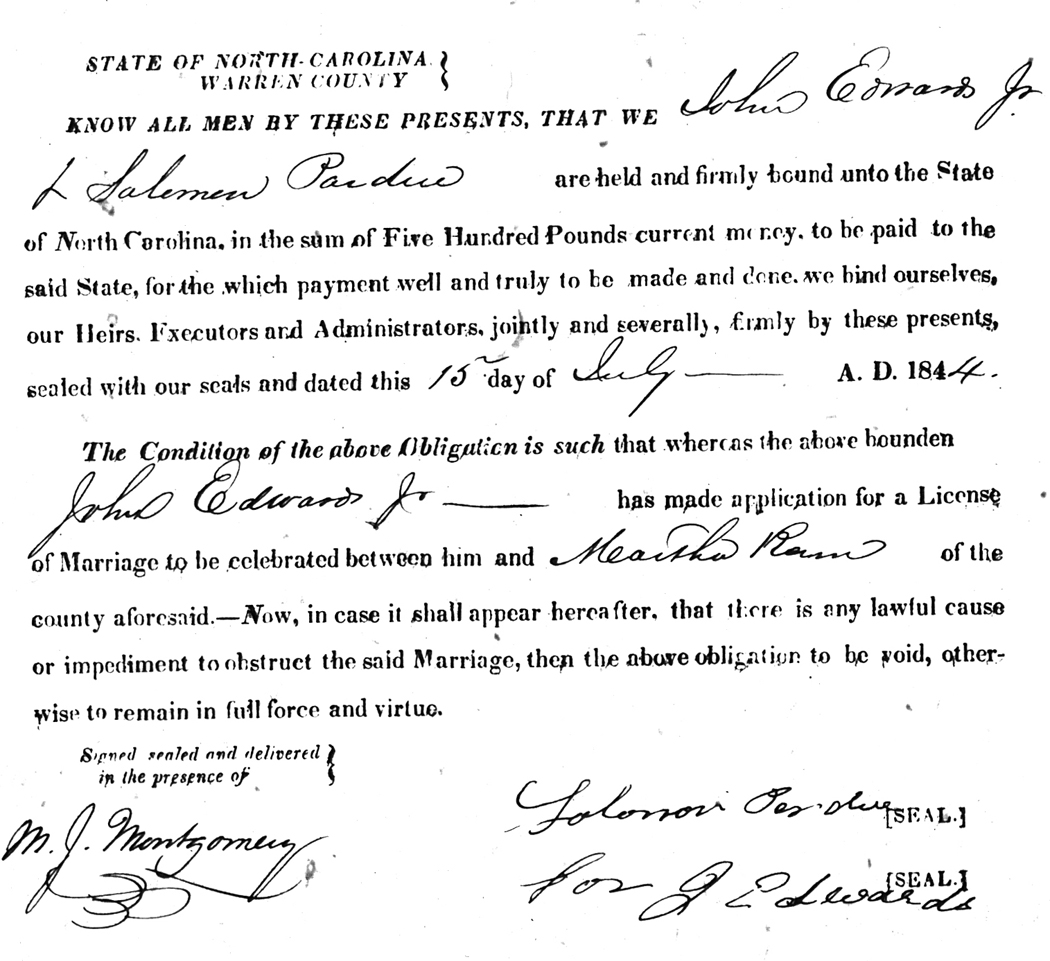 STATE OF NORTH-CAROLINA
WARREN COUNTY
KNOW ALL MEN BY THESE PRESENTS, THAT WE John Edwards Jr
& Solomon Pardue are held and firmly bound unto the State
of North Carolina, in the sum of Five Hundred Pounds current money, to be paid to the
said State, for the which payment well and truly to be made and done, we bind ourselves,
our Heirs, Executors and Administrators, jointly and severally, firmly by these presents,
sealed with our seals and dated this 15 day of July A. D. 1844.
The Condition of the above Obligation is such that whereas the above bounden
John Edwards Jr has made application for a License
of Marriage to be celebrated between him and Martha of the
county aforesaid.—Now, in case it shall appear hereafter, that there is any lawful cause
or impediment to obstruct the said Marriage, then the above obligation to be void, other-
wise to remain in full force and virtue.
Signed sealed and delivered
in the presence of
M. J. Montgomery
Solomon Perdue [SEAL.]
for J Edwards [SEAL.]